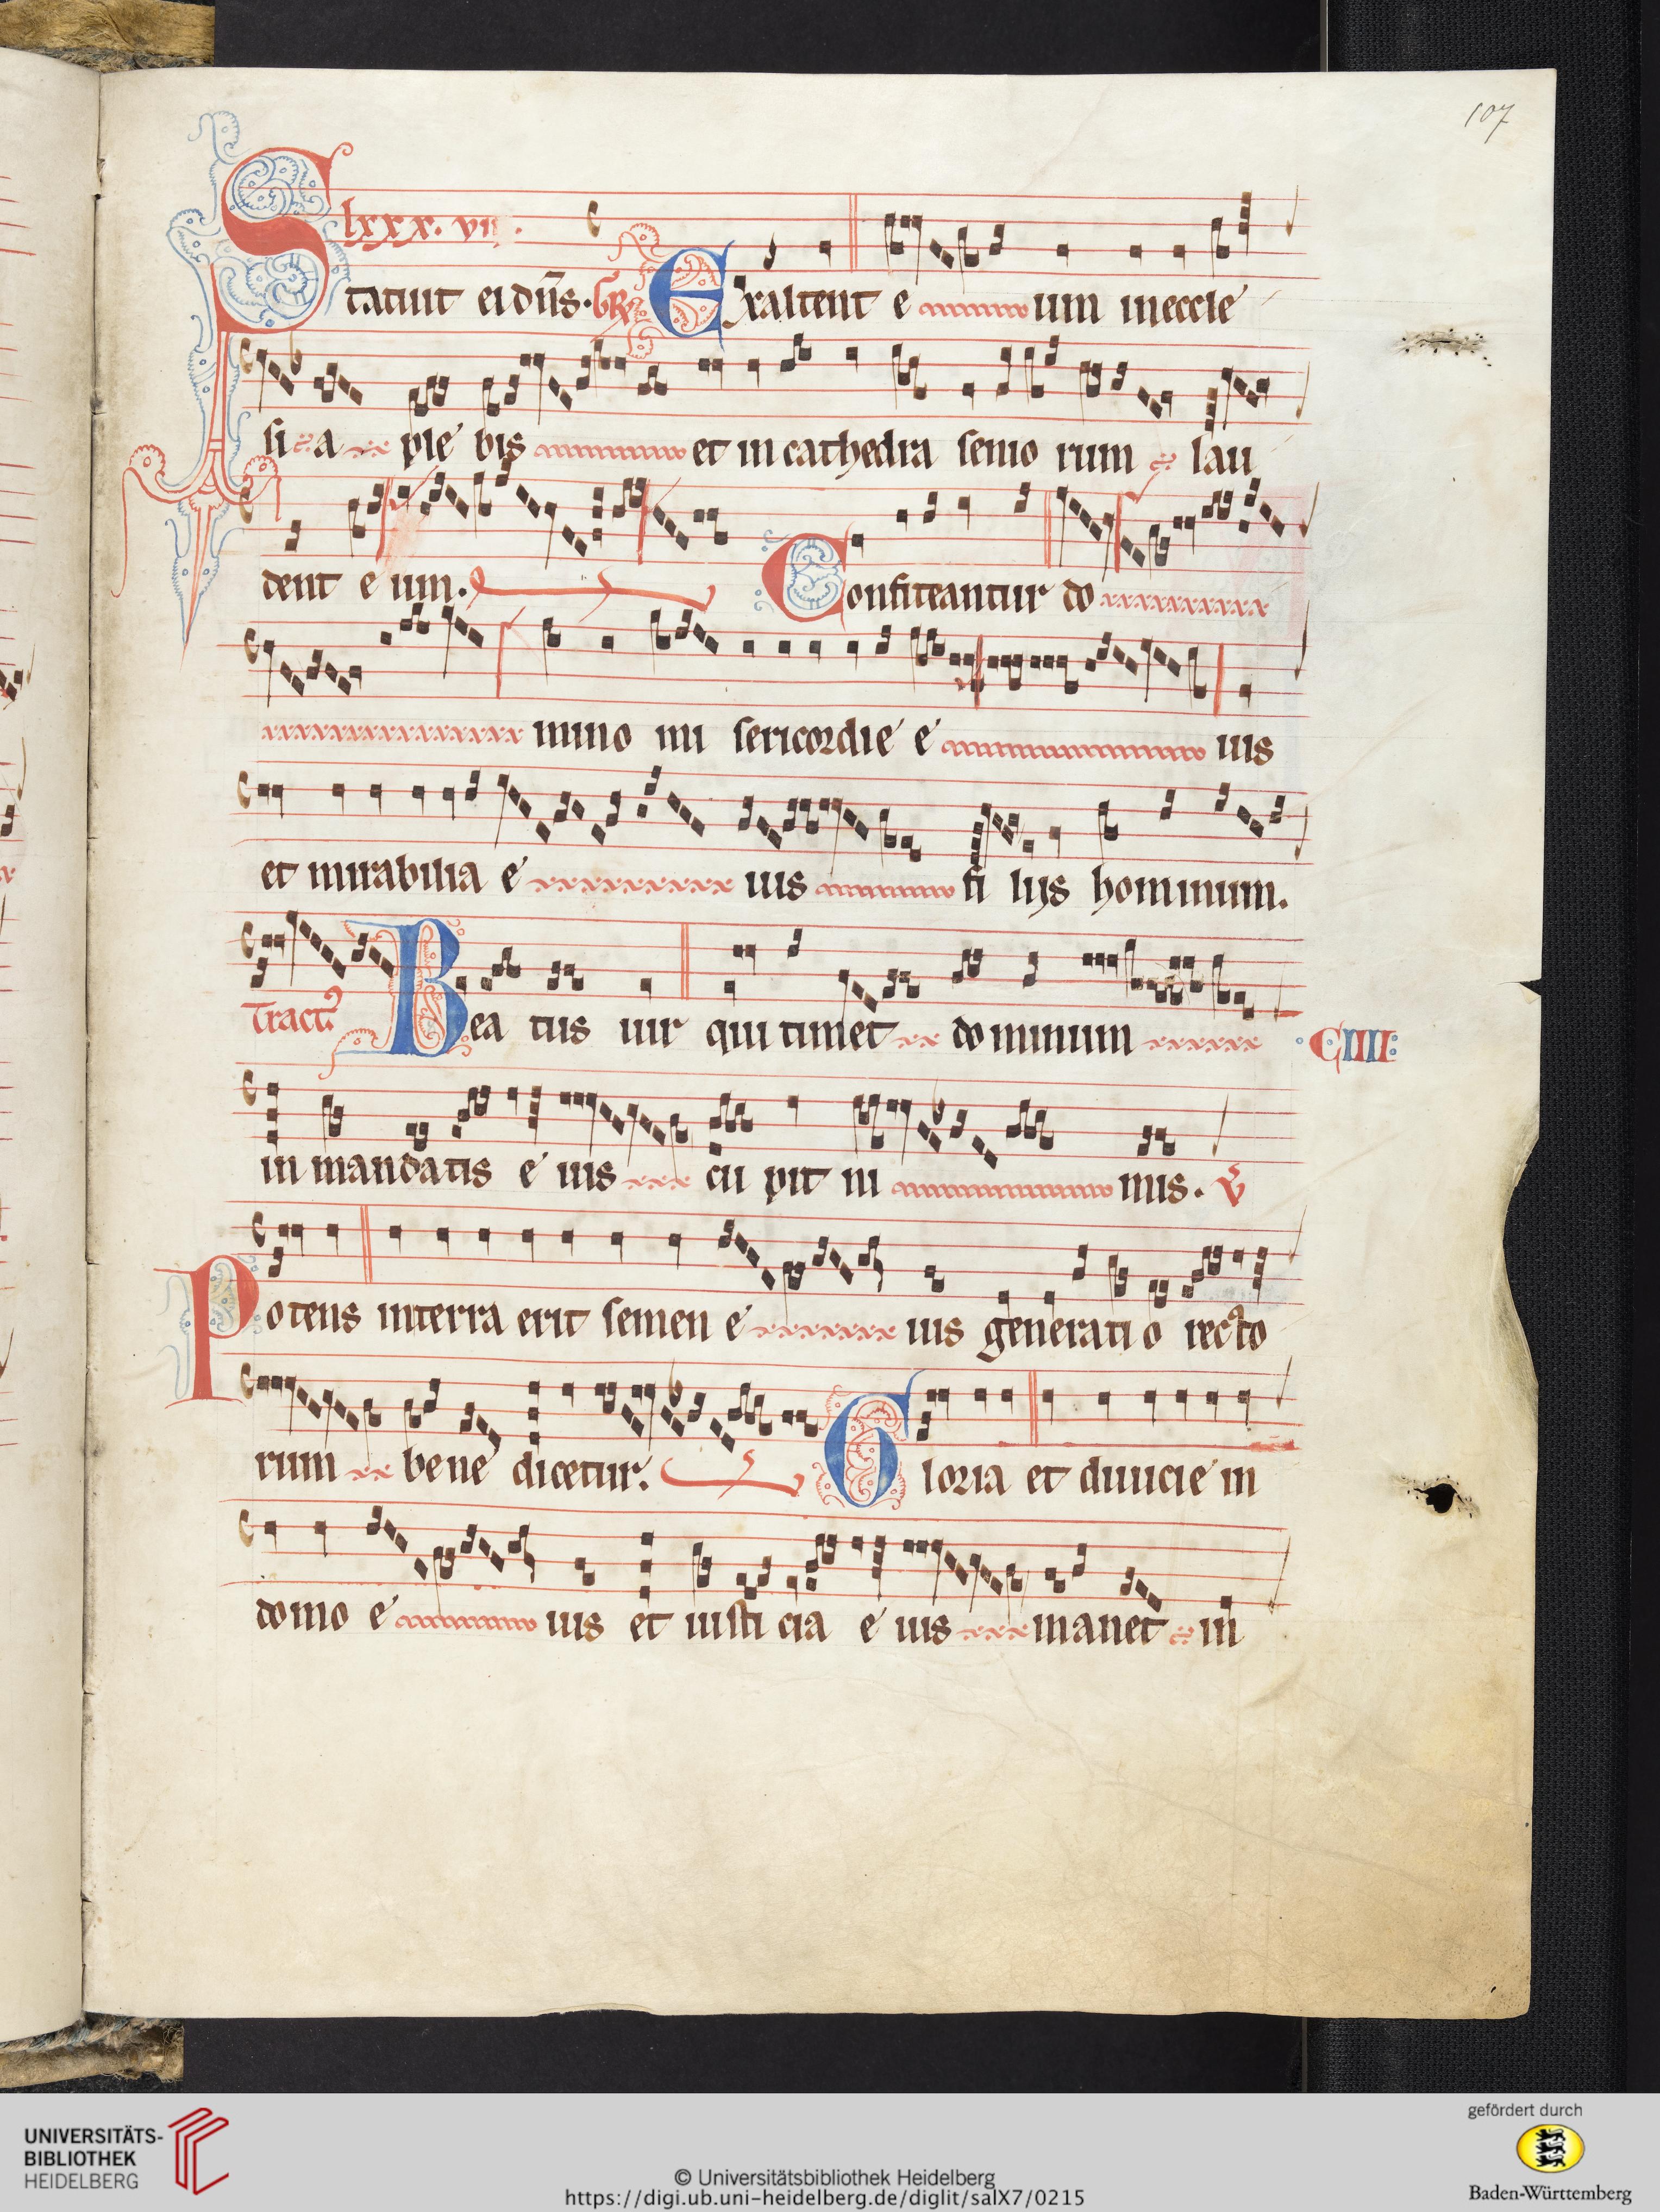 107
lxxx. vii.
Statuit ei dn̄s. Gr̄ Exaltent e um in eccle
si a ple bis et in cathedra senio rum lau
dent e um. Confiteantur do
mino mi sericordie e ius
et mirabilia e ius fi lijs hominum.
Tract᷒ Bea tus uir qui timet do minum CIIII:
in mandatis e ius cu pit ni mis. v̄
Potens in terra erit semen e ius generati o recto
rum bene dicetur. Gloria et diuicie in
domo e ius et iusti cia e ius manet in
UNIVERSITÄTS-
BIBLIOTHEK
HEIDELBERG
© Universitätsbibliothek Heidelberg
https://digi.ub.uni-heidelberg.de/diglit/salX7/0215
gefördert durch
Baden-Württemberg